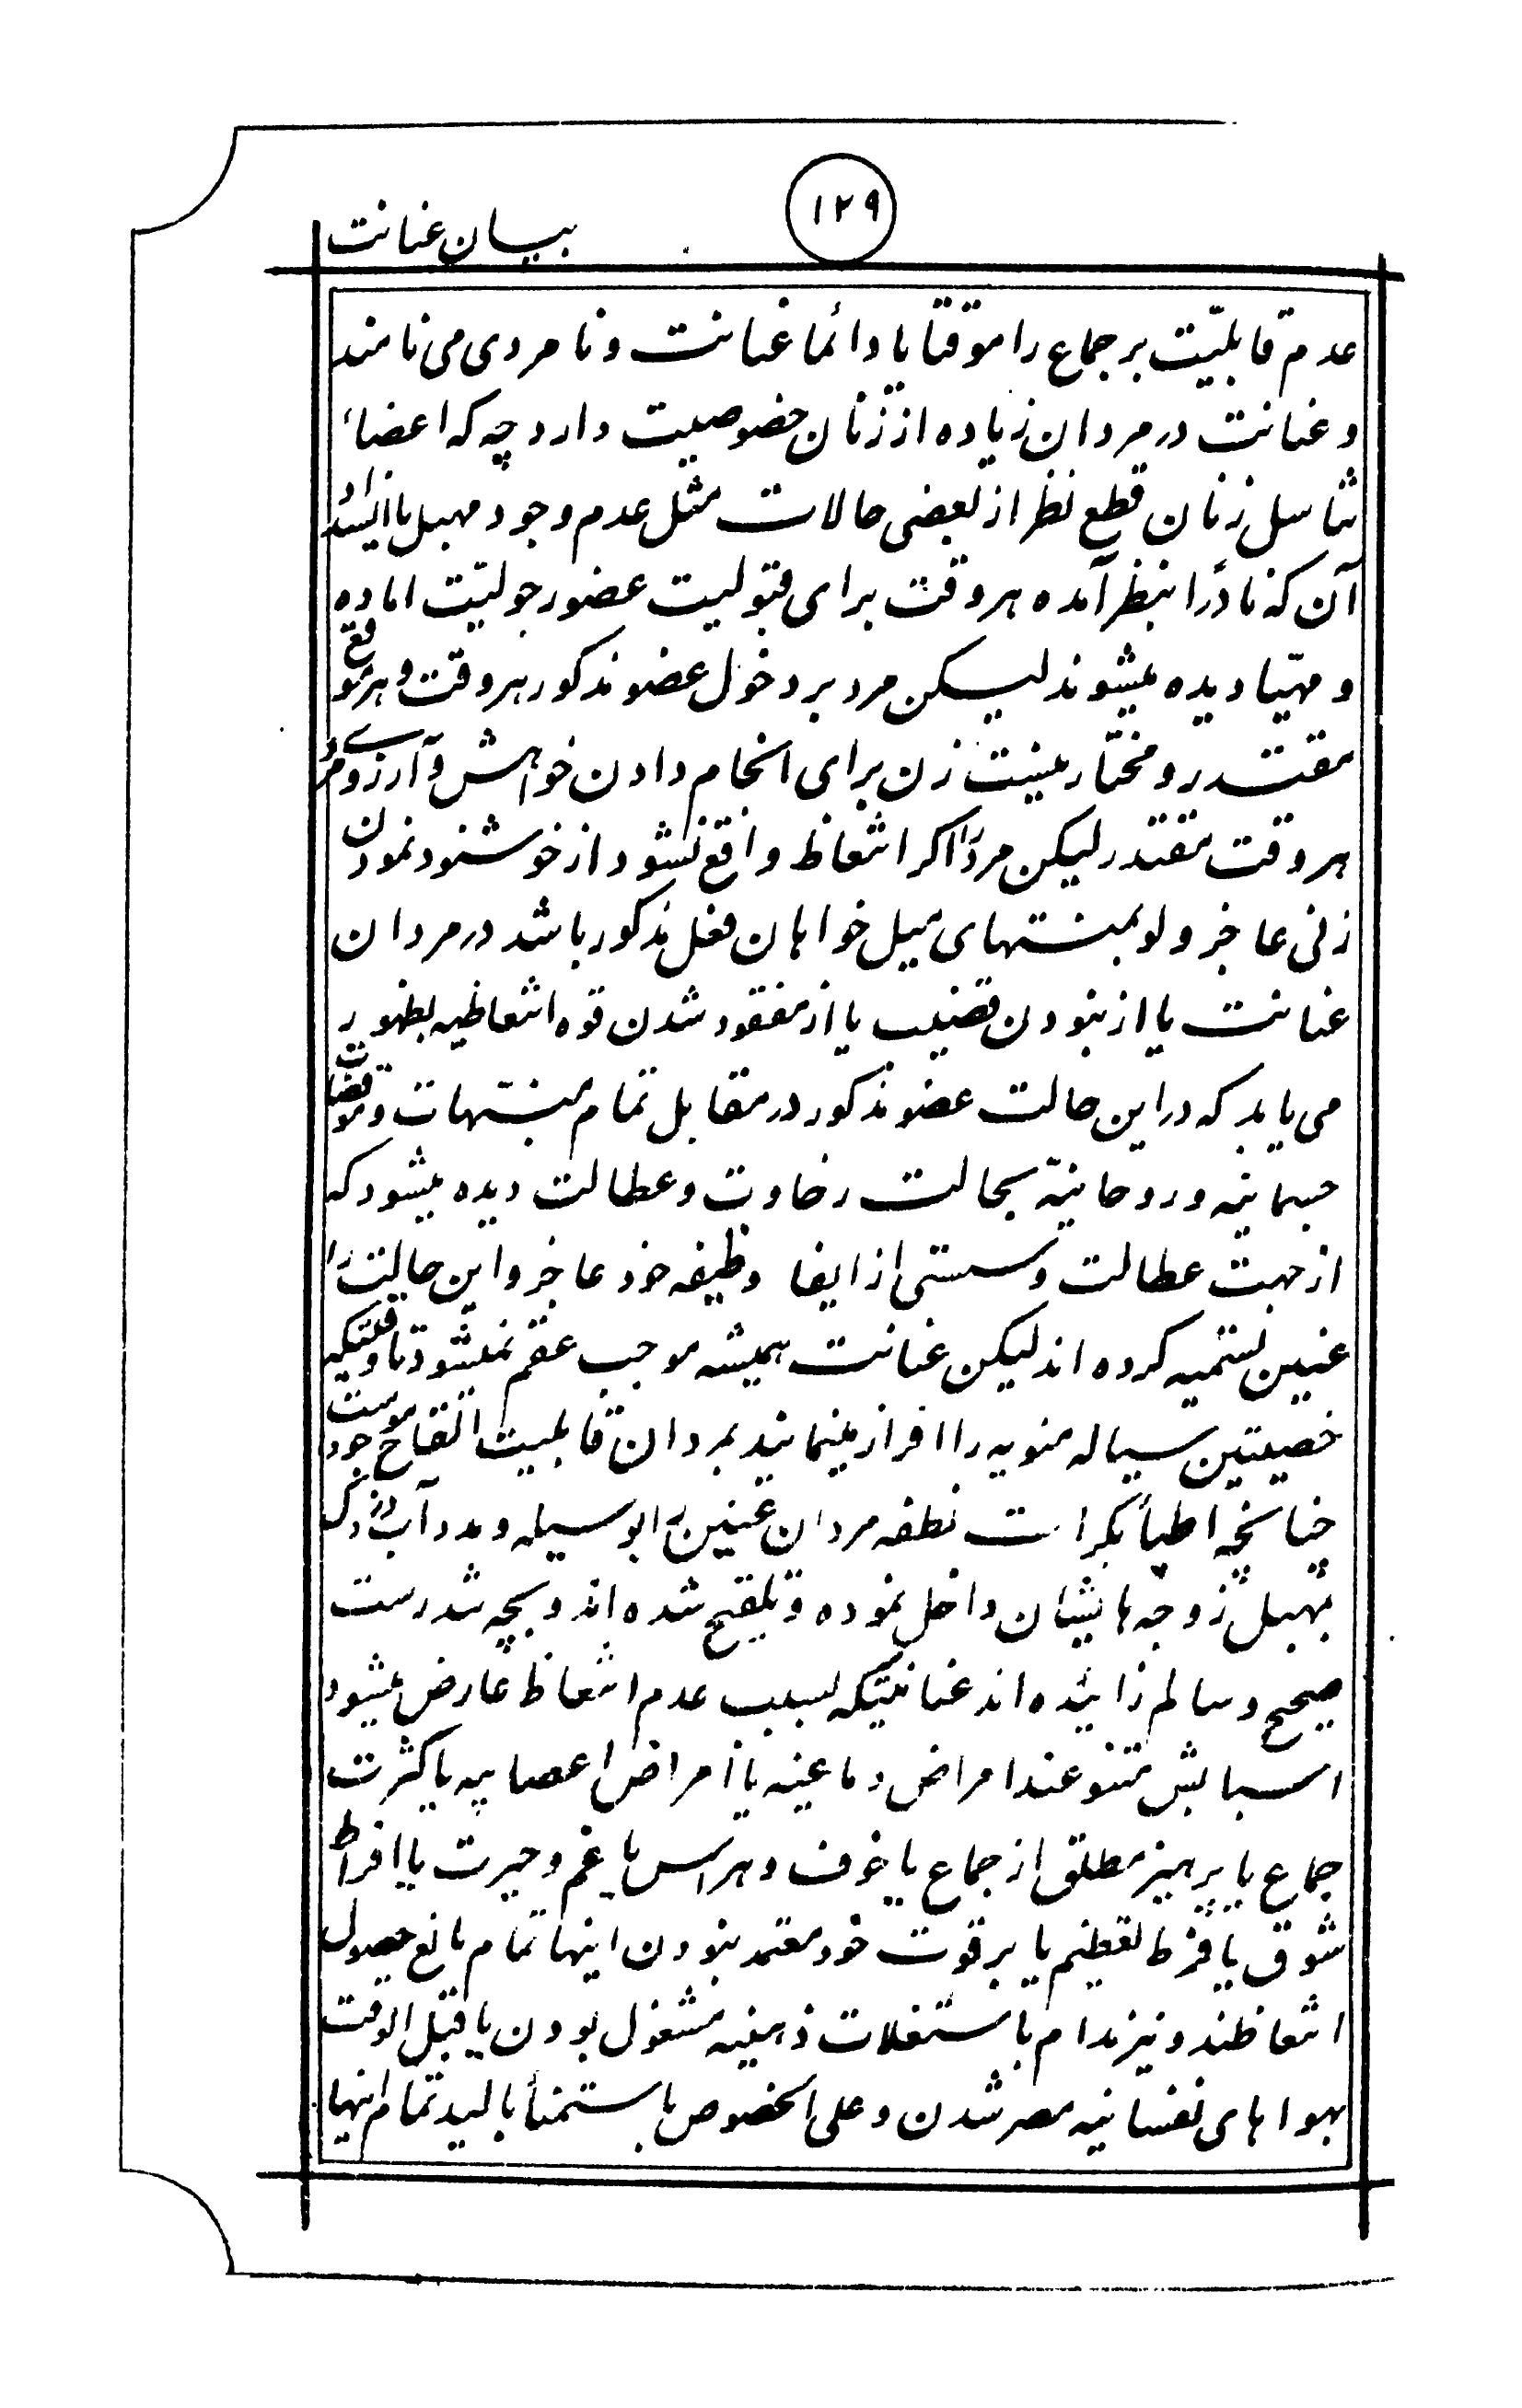 ۱۲۹
بیان عنانت
عدم قابلیّت بر جماع را موقتا یا دائما عنانت و نامردی می نامند
و عنانت در مردان زیاده از زنان خصوصیت دارد چه که اعضاء
تناسل زنان قطع نظر از بعضی حالات مثل عدم وجود مهبل یا انسداد
آن که نادرا بنظر آمده هر وقت برای قبولیت عضو رجولیّت اماده
و مهیّا دیده میشوند لیکن مرد بر دخول عضو مذکور هر وقت و هر موقع
مقتدر و مختار نیست زن برای انجام دادن خواهش و آرزوی مرد
هر وقت مقتدر لیکن مرد را اگر انتعاظ واقع نشود از خوشنود نمودن
زنی عاجز ولو بمنتهای میل خواهان فعل مذکور باشد در مردان
عنانت یا از نبودن قضیب یا از مفقود شدن قوه انتعاظیه بظهور
می یابد که در این حالت عضو مذکور در مقابل تمام منبّهات و موقضات
جسمانیه و روحانیّه بحالت رخاوت و عطالت دیده میشود که
از جهت عطالت و سستی از ایفا وظیفه خود عاجز و این حالت را
عنین تسمیه کرده اند لیکن عنانت همیشه موجب عقم نمیشود تا وقتیکه
خصیتین سیاله منویه را افراز مینمایند بمردان قابلیت القاح موجود است
چنانچه اطبأ بکرات نطفه مردان عنین را بوسیله و مدد آب دزدک
بمهبل زوجه هایشان داخل نموده و تلقیح شده اند و بچه تندرست
صحیح و سالم زائیده اند عنانتیکه بسبب عدم انتعاظ عارض میشود
اسبابش متنوعند امراض دماغیه یا امراض اعصابیه یا کثرت
جماع یا پرهیز مطلق از جماع یا خوف و هراس یا غم و حیرت یا افراط
شوق یا فرط تعظیم یا بر قوت خود معتمد نبودن اینها تمام مانع حصول
انتعاظند و نیز مدام با مشتغلات ذهنیه مشغول بودن یا قبل الوقت
بهواهای نفسانیه مصر شدن و علی الخصوص با ستمنأ بالید تمام اینها